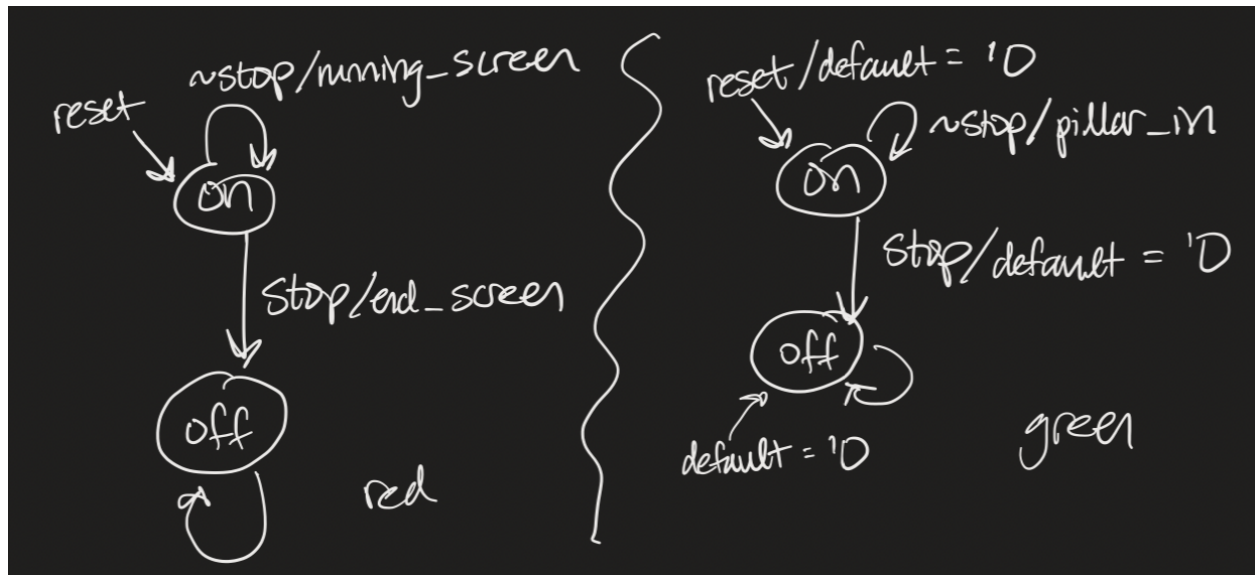 ~stop/running_screen
reset
on
stop/end_screen
off
red
reset/default = '0
~stop/pillar_in
on
stop/default = '0
off
default = '0
green